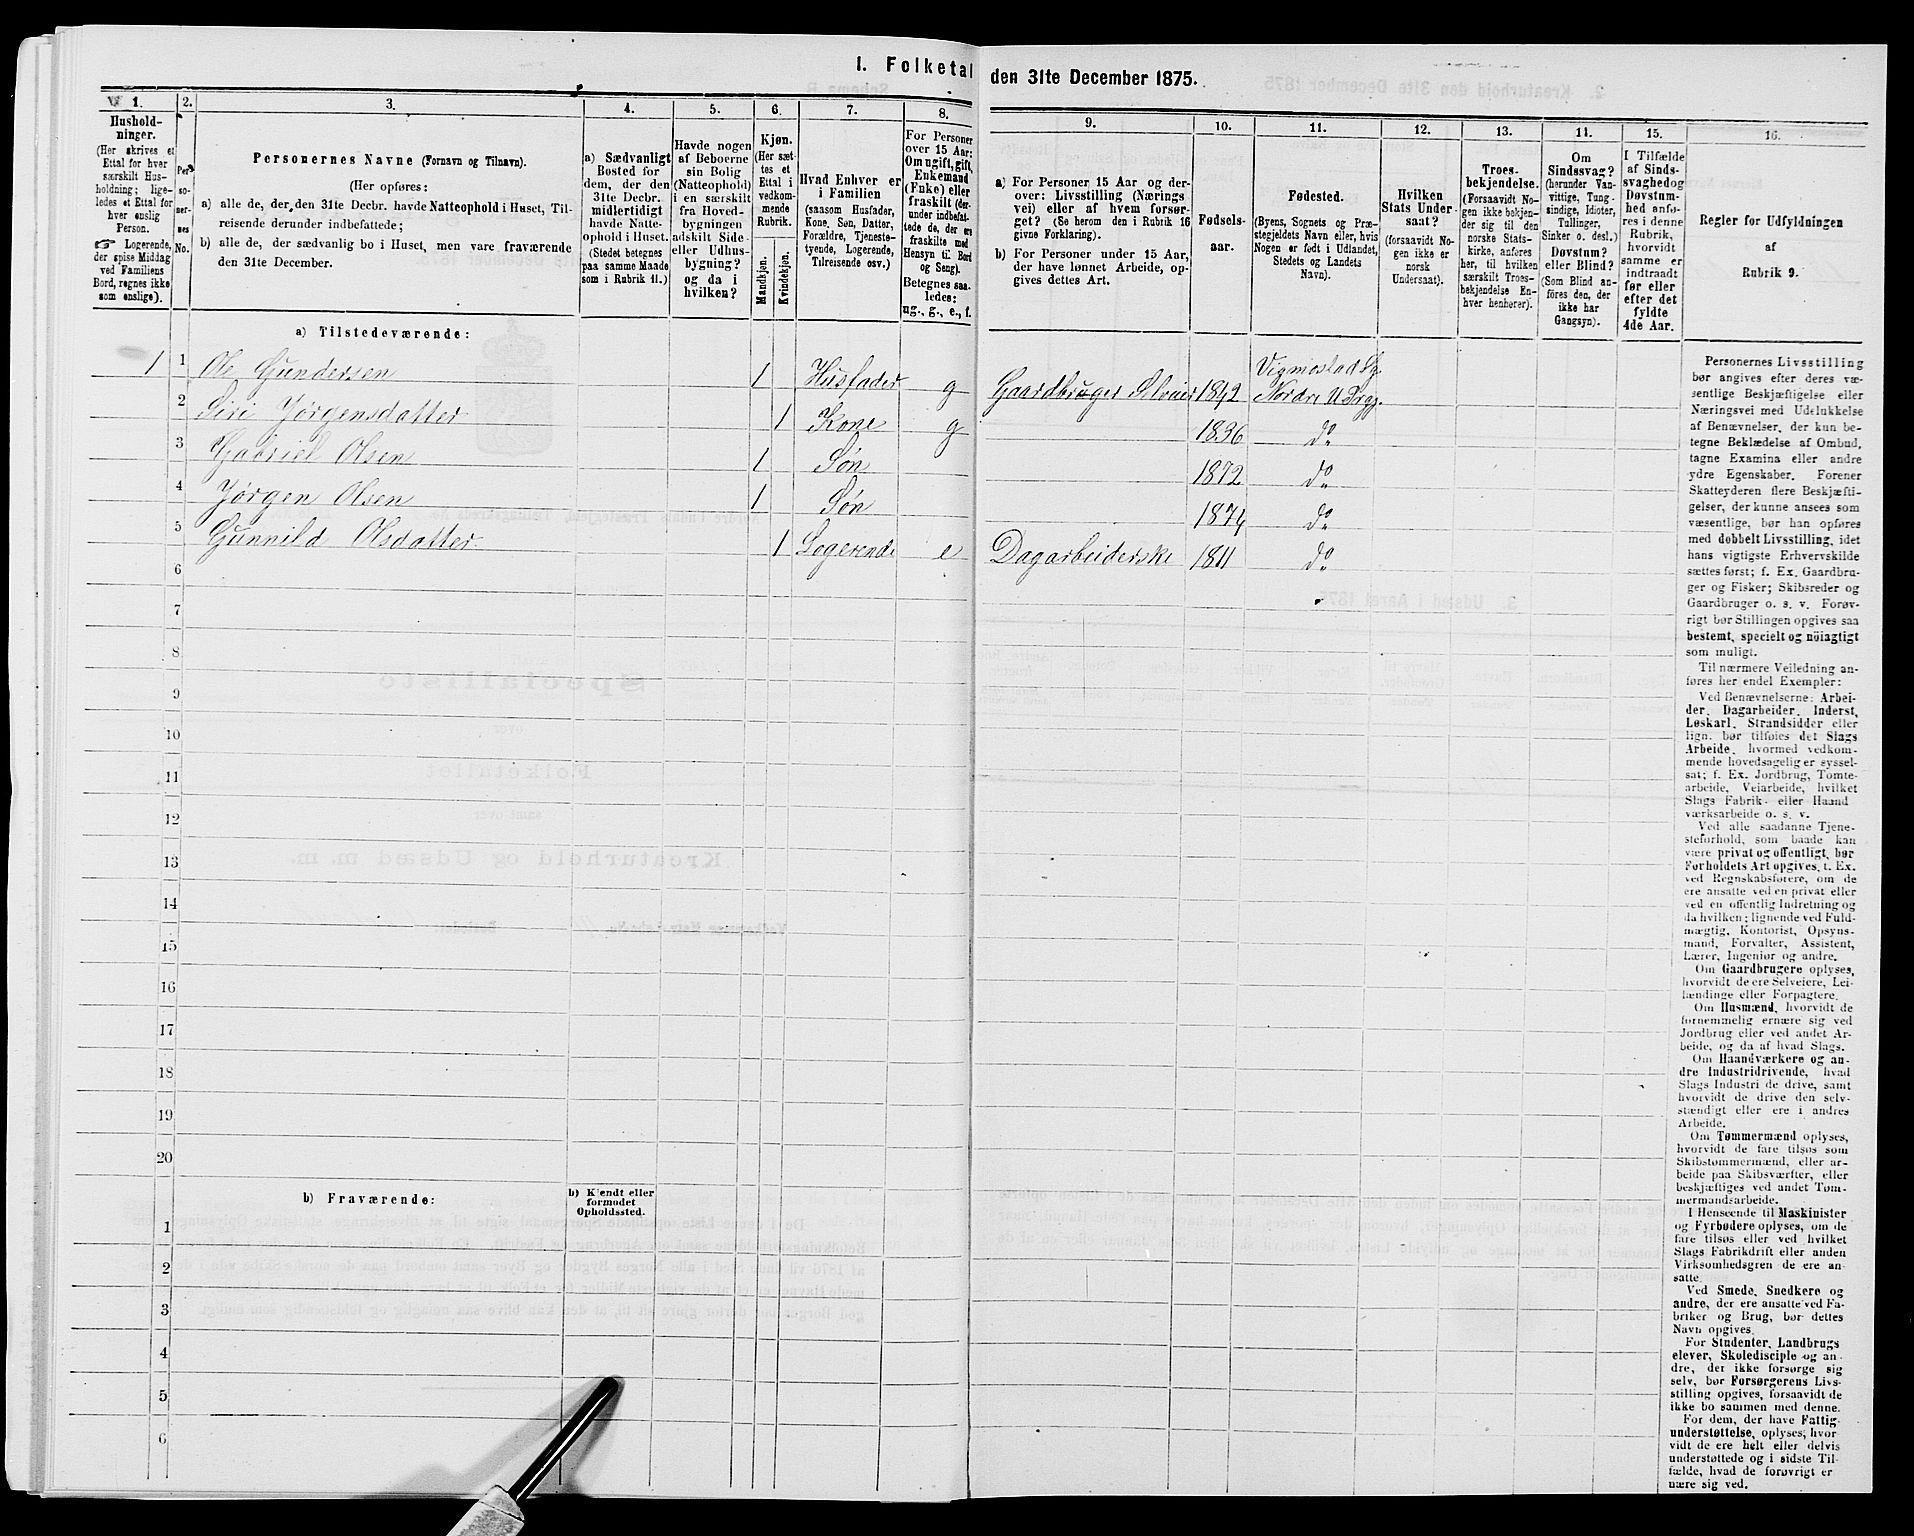 I. Folketal den 31te December 1875.
1.
Hushold-
ninger.
(Her skrives et
Ettal for hver
særskilt Hus-
holdning; lige-
ledes et Ettal for
hver enslig
Person.
☞ Logerende,
der spise Middag
ved Familiens
Bord, regnes ikke
som enslige).
2.
Per-
so-
ner-
nes
No.
3.
Personernes Navne (Fornavn og Tilnavn).
(Her opføres:
a) alle de, der den 31te Decbr. havde Natteophold i Huset, Til-
reisende derunder indbefattede;
b) alle de, der sædvanlig bo i Huset, men vare fraværende
den 31te December.
4.
a) Sædvanligt
Bosted for
dem, der den
31te Decbr.
midlertidigt
havde Natte-
ophold i Huset.
(Stedet betegnes
paa samme Maade
som i Rubrik 11.)
5.
Havde nogen
af Beboerne
sin Bolig
(Natteophold)
i en særskilt
fra Hoved-
bygningen
adskilt Side-
eller Udhus-
bygning?
og da i
hvilken?
6.
Kjøn.
(Her sæt-
tes et
Ettal i
vedkom-
mende
Rubrik.
Mandkjøn.
Kvindekjøn.
7.
Hvad Enhver er
i Familien
(saasom Husfader,
Kone, Søn, Datter,
Forældre, Tjeneste-
tyende, Logerende,
Tilreisende osv.)
8.
For Personer
over 15 Aar:
Om ugift, gift,
Enkemand
(Enke) eller
fraskilt (der-
under indbefat-
tede de, der ere
fraskilte med
Hensyn til Bord
og Seng).
Betegnes saa-
ledes:
ug., g., e., f.
9.
a) For Personer 15 Aar og der-
over: Livsstilling (Nærings
vei) eller af hvem forsør-
get? (Se herom den i Rubrik 16
givne Forklaring).
b) For Personer under 15 Aar,
der have lønnet Arbeide, op-
gives dettes Art.
10.
Fødsels-
aar.
11.
Fødested.
(Byens, Sognets og Præ-
stegjeldets Navn eller, hvis
Nogen er født i Udlandet,
Stedets og Landets
Navn).
12.
Hvilken
Stats Under-
saat?
(forsaavidt No-
gen ikke er
norsk
Undersaat).
13.
Troes-
bekjendelse.
(Forsaavidt No-
gen ikke bekjen-
der sig til den
norske Stats-
kirke, anføres
her, til hvilken
særskilt Troes-
bekjendelse En-
hver henhører).
14.
Om
Sindssvag?
(herunder Van-
vittige, Tung-
sindige, Idioter,
Tullinger,
Sinker o. desl.)
Døvstum?
eller Blind?
(Som Blind an-
føres den, der
ikke har
Gangsyn).
15.
I Tilfælde
af Sinds-
svaghed og
Døvstum-
hed anfø-
res i denne
Rubrik,
hvorvidt
samme er
indtraadt
før eller
efter det
fyldte
4de Aar.
16.
Regler for Udfyldningen
af
Rubrik 9.
a) Tilstedeværende:
1 1 Ole Gundersen 1 Husfader g Gaardbruger Selveier 1842 Vigmostad Sg. Nordre U Prgj.
2 Siri Jørgensdatter 1 Kone g 1836 do
3 Gabriel Olsen 1 Søn 1872 do
4 Jørgen Olsen 1 Søn 1874 do
5 Gunnild Olsdatter 1 Logerende e Dagarbeiderske 1811 do
6
7
8
9
10
11
12
13
14
15
16
17
18
19
20
b) Fraværende:
b) Kjendt eller
formodet
Opholdssted.
1
2
3
4
5
6
Personernes Livsstilling
bør angives efter deres væ-
sentlige Beskjæftigelse eller
Næringsvei med Udelukkelse
af Benævnelser, der kun be-
tegne Beklædelse af Ombud,
tagne Examina eller andre
ydre Egenskaber. Forener
Skatteyderen flere Beskjæfti-
gelser, der kunne ansees som
væsentlige, bør han opføres
med dobbelt Livsstilling, idet
hans vigtigste Erhvervskilde
sættes først; f. Ex. Gaardbru-
ger og Fisker; Skibsreder og
Gaardbruger o. s. v. Forøv-
rigt bør Stillingen opgives saa
bestemt, specielt og nøiagtigt
som muligt.
Til nærmere Veiledning an-
føres her endel Exempler:
Ved Benævnelserne: Arbei-
der, Dagarbeider, Inderst,
Løskarl, Strandsidder eller
lign. bør tilføies det Slags
Arbeide, hvormed vedkom-
mende hovedsagelig er syssel-
sat; f. Ex. Jordbrug, Tømte-
arbeide, Veiarbeide, hvilket
Slags Fabrik- eller Haand
værksarbeide o. s. v.
Ved alle saadanne Tjene-
steforhold, som baade kan
være privat og offentligt, bør
Forholdets Art opgives, f. Ex.
ved Regnskabsførere, om de
ere ansatte ved en privat eller
ved en offentlig Indretning og
da hvilken; lignende ved Fuld-
mægtig, Kontorist, Opsyns-
mand, Forvalter, Assistent,
Lærer, Ingeniør og andre.
Om Gaardbrugere oplyses,
hvorvidt de ere Selveiere, Lei-
lændinge eller Forpagtere.
Om Husmænd, hvorvidt de
fornemmelig ernære sig ved
Jordbrug eller ved andet Ar-
beide, og da af hvad Slags.
Om Haandværkere og an-
dre Industridrivende, hvad
Slags Industri de drive, samt
hvorvidt de drive den selv-
stændigt eller ere i andres
Arbeide.
Om Tømmermænd oplyses,
hvorvidt de fare tilsøs som
Skibstømmermænd, eller ar-
beide paa Skibsværfter, eller
beskjæftiges ved andet Tøm-
mermandsarbeide.
I Henseende til Maskinister
og Fyrbødere oplyses, om de
fare tilsøs eller ved hvilket
Slags Fabrikdrift eller anden
Virksomhedsgren de ere an-
satte.
Ved Smede, Snedkere og
andre, der ere ansatte ved Fa-
briker og Brug, bør dettes
Navn opgives.
For Studenter, Landbrugs
elever, Skoledisciple og an-
dre, der ikke forsørge sig
selv, bør Forsørgerens Livs-
stilling opgives, forsaavidt de
ikke bo sammen med denne.
For dem, der have Fattig-
understøttelse, oplyses, hvor-
vidt de ere helt eller delvis
understøttede og i sidste Til-
fælde, hvad de forøvrigt er
nære sig ved.